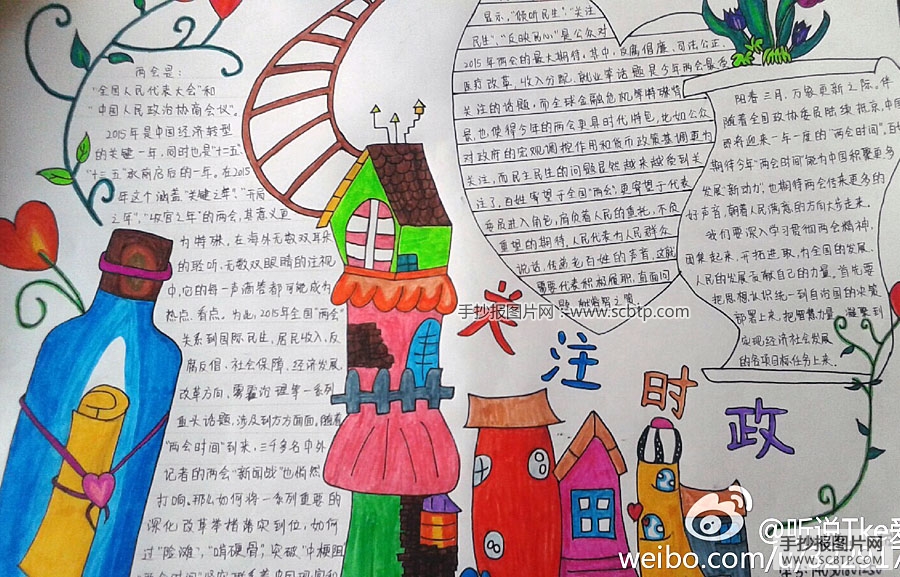 两会是:
"全国人民代表大会"和
"中国人民政治协商会议"。
2015年是中国经济转型
的关键一年,同时也是"十二五"
"十三五"承前启后的一年。在2015
年这个涵盖"关键之年"、"开局
之年"、"收官之年"的两会,其意义更
为特殊。在海外无数双耳朵
的聆听、无数双眼睛的注视
中,它的每一声涌卷都可能成为
热点、看点。为此,2015年全国"两会"
关系到国际民生,居民收入,反
腐反倡,社会保障,经济发展
改革方向,雾霾治理等一系列
重头话题,涉及到方方面面,随着
"两会时间"到来,三千多名中外
记者的两会"新闻战"也悄然
打响。那么如何将一系列重要的
深化改革举措落实到位,如何
过"险滩","啃硬骨",突破"中梗阻
显示,"倾听民生"、"关注
民生"、"反映民心"是公众对
2015年两会的最大期待,其中,反腐倡廉、司法公正、
医疗改革、收入分配、就业等话题是今年两会最受
关注的话题,而全球金融危机等特殊背
景,也使得今年的两会更具时代特色,比如公众
对政府的宏观调控作用和货币政策基调更为
关注,而民主民生的问题显然越来越受到关
注了,百姓寄望于全国"两会",更寄望于代表
委员进入角色,肩负着人民的重托,不负
重望的期待,人民代表为人民群众
说话,传递老百姓的声音,这就
需要代表积极履职,直面问
题,献谋努之策
阳春三月,万象更新之际。伴
随着全国政协委员陆续抵京,中国
即将迎来一年一度的"两会时间"。百
期待今年"两会时间"能为中国积聚更多
发展"新动力",也期待两会传来更多的
好声音,朝着人民满意的方向大步走来。
我们要深入学习贯彻两会精神,
团集起来,开拓进取,为全国的发展、
人民的发展贡献自己的力量。首先要
把思想认识统一到自治国的决策
部署上来,把智慧力量凝聚到
实现经济社会发展
的各项目标任务上来。
关
注
时
政
手抄报图片网——www.scbtp.com
@听说Tke爱
weibo.com/
手抄报图片网
WWW.SCBTP.COM